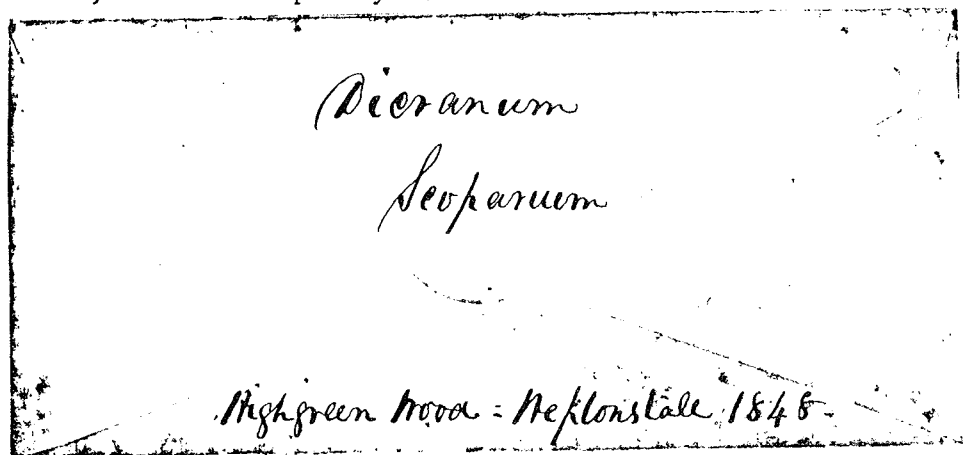 Dicranum
Scoparium
Highgreen Wood = Heptonstall 1848-